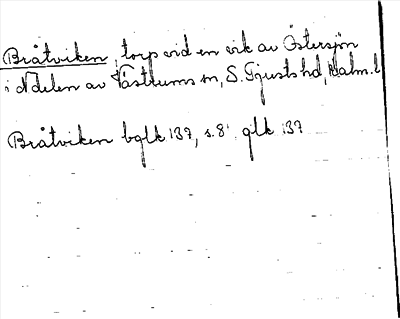 Bråtviken, torp vid en vik av Östersjön
i N delen av Västrums sn, S. Tjusts hd, Kalm. l
Bråtviken bglk 137, s. 8. glk 137